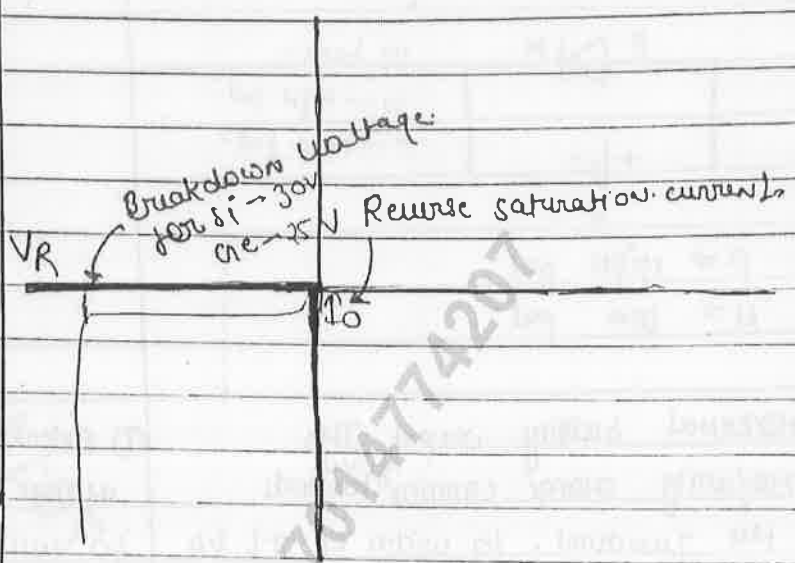 Breakdown Voltage.
for Si → 30V
Ge → 25V
Reverse saturation current.
VR
I0
7014774207